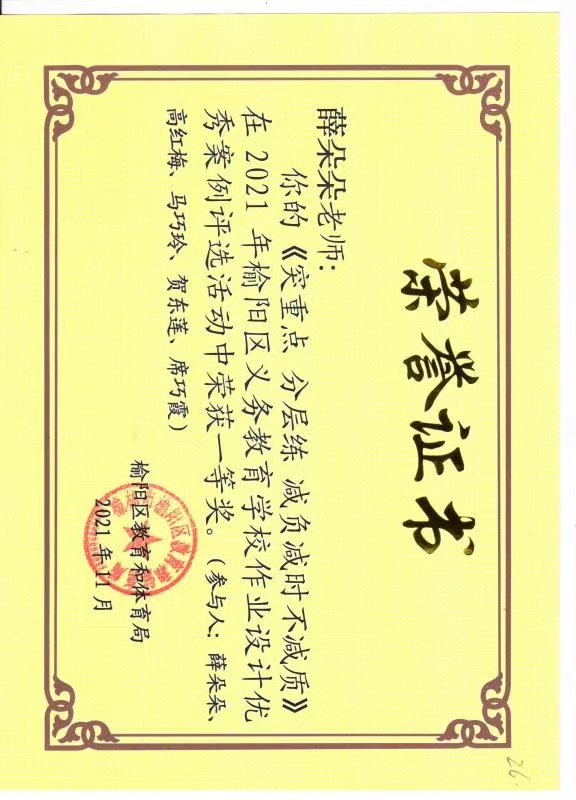 荣誉证书
薛朵朵老师:
你的《突重点 分层练 减负减时不减质》
在 2021 年榆阳区义务教育学校作业设计优
秀案例评选活动中荣获一等奖。(参与人: 薛朵朵、
高红梅、马巧玲、贺东莲、席巧霞)
榆阳区教育和体育局
2021 年 11 月
26